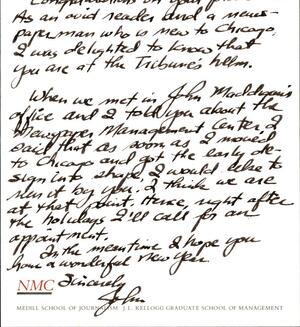 Congratulations on your
As an avid reader and a news-
paper man who is new to Chicago,
I was delighted to know that
you are at the Tribune's helm.
When we met in John Madigan's
office and I told you about the
Newspaper Management Center, I
said that as soon as I moved
to Chicago and got the early de-
sign into shape, I would like to
run it by you. I think we are
at that point. Hence, right after
the holidays I'll call for an
appointment.
In the meantime I hope you
have a wonderful new year.
Sincerely
John
NMC
MEDILL SCHOOL OF JOURNALISM J.L. KELLOGG GRADUATE SCHOOL OF MANAGEMENT